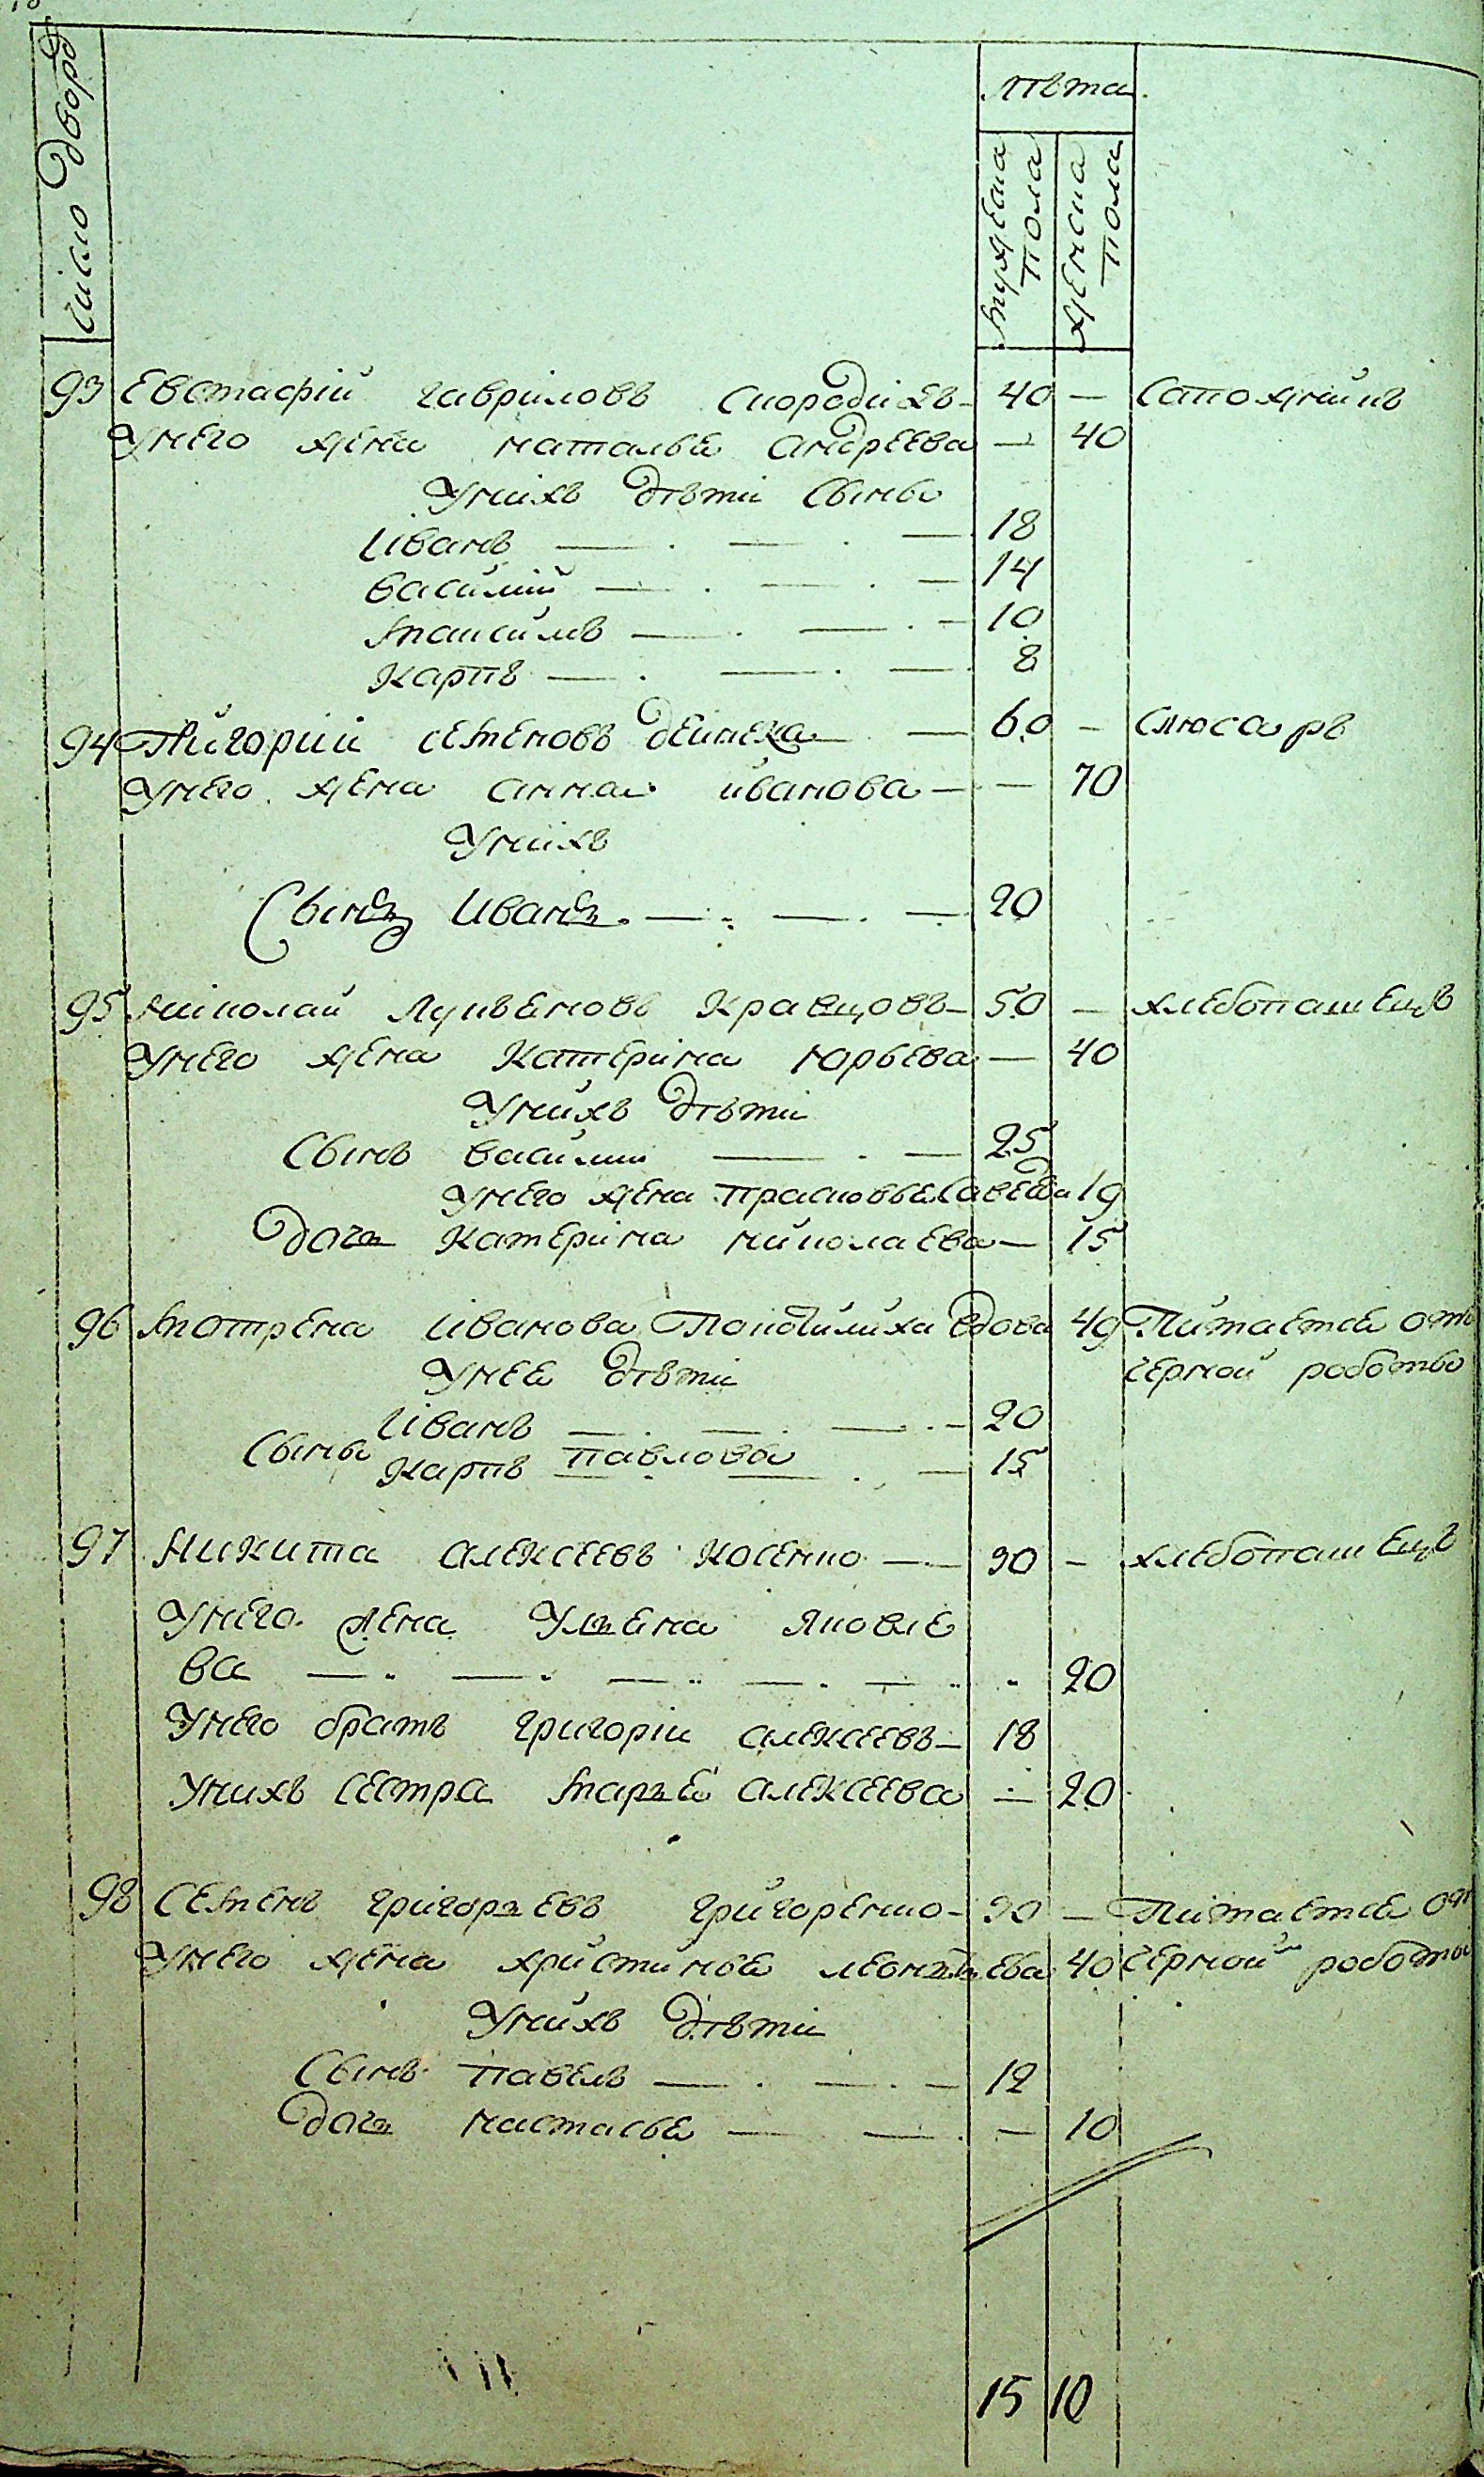 число дворо
лѣта
мужеска пола
женска пола
93 Евстафiй гаврiловъ скородiхъ 40 — сапожнйкъ
унего жена наталья андреева — 40
унихъ дѣти Сынъ
Иванъ — 18
василий — 14
максимъ — 10
карпъ — 8
94 Григорий семеновъ дейнека — 60 — слюсаръ
унего жена анна иванова — — 70
унихъ
Сынъ Иванъ — 20
95 николай лукъеновъ Кравцовъ 50 — хлебопашецъ
унего жена Катерiна юрьева — 40
унихъ дѣти
Сынъ василии — 25
унего жена прасковья 19
дочъ Катерiна николаева — 15
96 мотрена Iванова вдова 49 Питается отъ
унее дѣти черной роботы
Iванъ — 20
Сынъ карпъ павловы — 15
97 Никита алексеевъ косенко — 30 — хлебопашецъ
унего жена Улъена яковле
ва — 20
унего братъ григорiи алексеевъ — 18
унихъ сестра маръе алексеева — 20
98 Семенъ грiгоръевъ григоренко — 30 — Питается от
унего жена христинье леонтъева 40 черной роботы
унихъ дѣти
Сынъ павелъ — 12
дочъ настасье — — 10
15 10